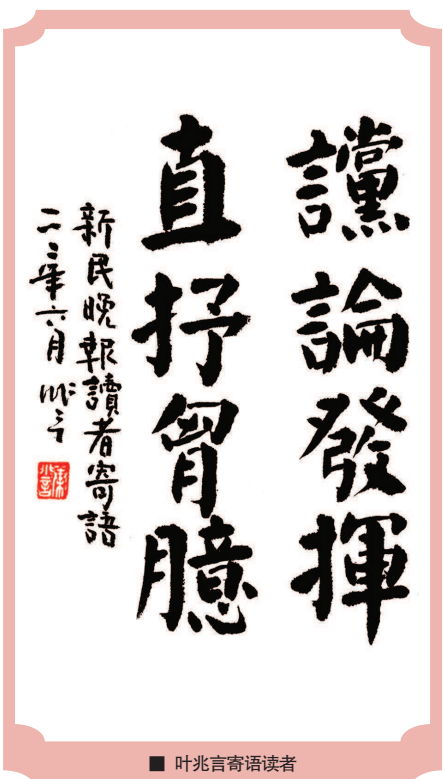 讜論發揮
直抒胷臆
新民晚報讀者寄語
二三年六月 兆言
■ 叶兆言寄语读者